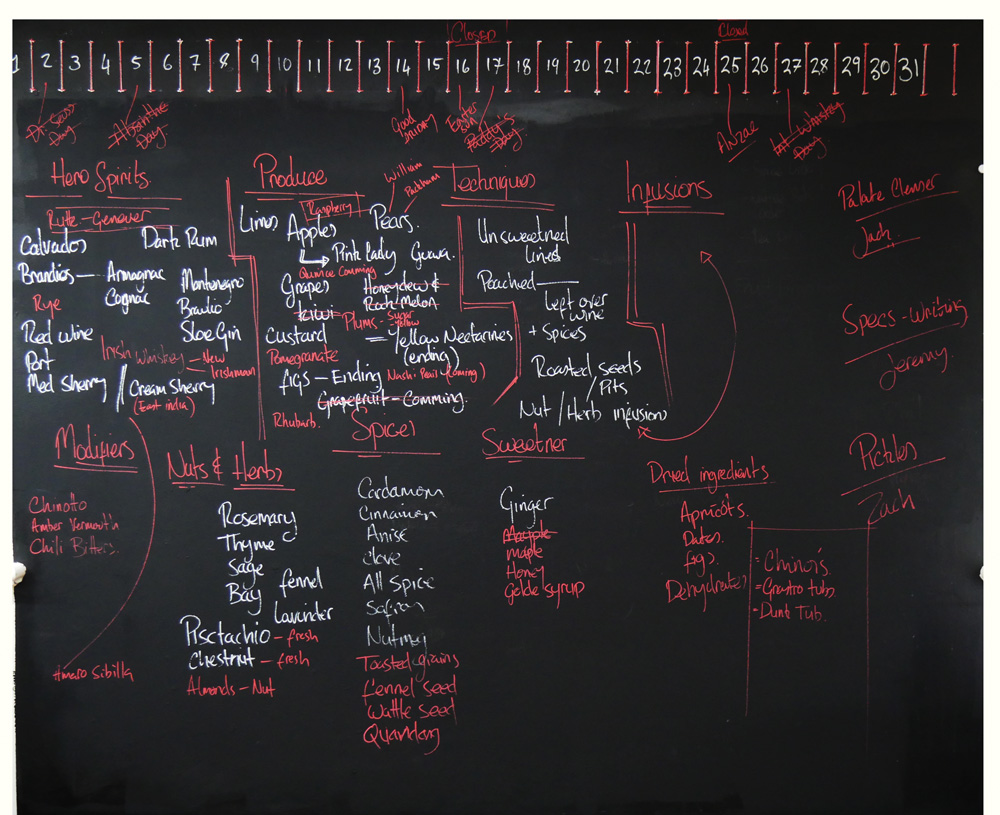 Closed
Closed
1 2 3 4 5 6 7 8 9 10 11 12 13 14 15 16 17 18 19 20 21 22 23 24 25 26 27 28 29 30 31
Dr Seuss
Day
Absinthe
Day
Good
Friday
Easter
Sun
Paddy's
Day
Anzac
Int Whiskey
Day
Hero Spirits
Rutte - Genever
Calvados
Dark Rum
Brandies — Armagnac
Cognac
Montenegro
Braulio
Rye
Red wine
Sloe Gin
Port
Irish Whiskey - New
Irishman
Med Sherry / Cream Sherry
(East india)
Modifiers
Chinotto
Amber Vermouth
Chili Bitters
Amaro Sibilla
Produce
William
Packham
Raspberry
Limes
Apples
Pears.
Pink lady
Guava.
Quince Comming
Grapes
Honeydew &
Rock Melon
Kiwi
Plums - Sugar
- Yellow
Custard
= Yellow Nectarines
(ending)
Pomegranate
figs - Ending
Nashi Pear (Coming)
Grapefruit - Comming.
Rhubarb.
Techniques
Unsweetned
lines
Peached
Left over
wine
+ Spices
Roasted Seeds
/ Pits
Nut / Herb infusion
Infusions
Palate Clenser
Jack.
Specs - Writing
Jeremy.
Pickles
Zach
Nuts & Herbs
Rosemary
Thyme
Sage
Bay
fennel
Lavinder
Pisctachio - fresh
Chestnut - fresh
Almonds - Nut
Spices
Cardamom
Cinnamen
Anise
clove
All Spice
Safron
Nutmeg
Toasted grains
fennel seed
Wattle seed
Quandong
Sweetner
Ginger
Maple
Honey
Golde syrup
Dried ingredients
Apricots.
Dates.
figs.
Dehydrates
- Chinois
- Grastro tubs
- Dunk Tub.